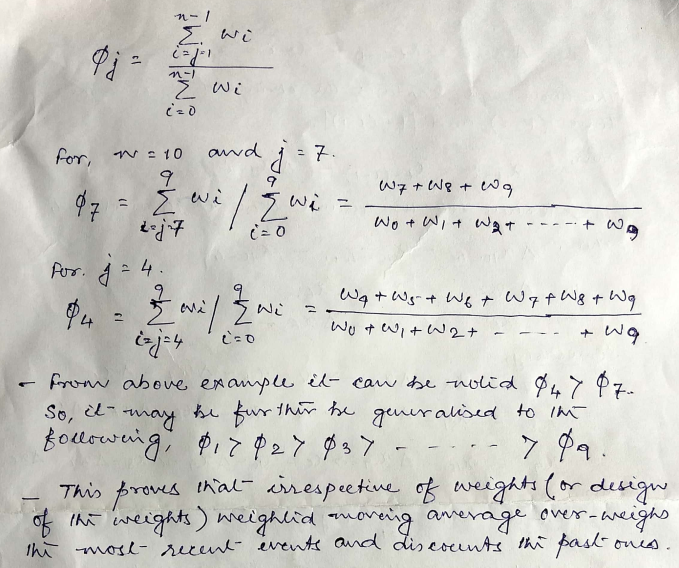 ϕj = \frac{\sum_{i=j-1}^{n-1} wi}{\sum_{i=0}^{n-1} wi}
For, n = 10 and j = 7.
ϕ7 = \sum_{i=j=7}^{9} wi / \sum_{i=0}^{9} wi = \frac{w7 + w8 + w9}{w0 + w1 + w2 + ----- + w9}
For. j = 4.
ϕ4 = \sum_{i=j=4}^{9} wi / \sum_{i=0}^{9} wi = \frac{w4 + w5 + w6 + w7 + w8 + w9}{w0 + w1 + w2 + - ---- + w9}
- From above example it can be notid ϕ4 > ϕ7.
So, it may be further be generalised to the
following, ϕ1 > ϕ2 > ϕ3 > - ---- > ϕ9.
- This proves that irrespective of weights (or design
of the weights) weightid moving average over-weighs
the most recent events and discounts the past ones.